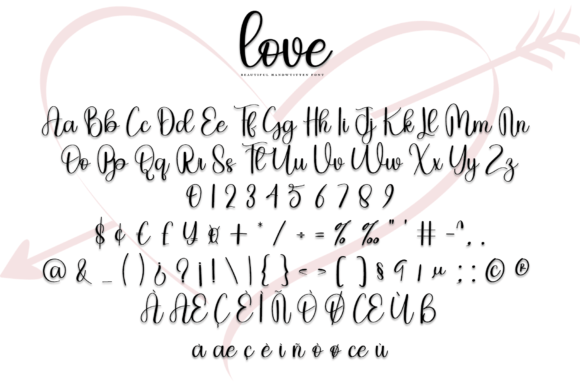 love
BEAUTIFUL HANDWRITTEN FONT
Aa Bb Cc Dd Ee Ff Gg Hh Ii Jj Kk Ll Mm Nn
Oo Pp Qq Rr Ss Tt Uu Vv Ww Xx Yy Zz
0 1 2 3 4 5 6 7 8 9
$ ¢ € £ ¥ ¤ + * / ÷ = % ‰ " ' # - ^ , .
@ & _ ( ) ¿ ? ¡ ! \ | { } < > [ ] § ¶ µ : ; © ®
À Æ Ç È Ì Ñ Ò Ø Œ Ù ß
à æ ç è ì ñ ò ø œ ù